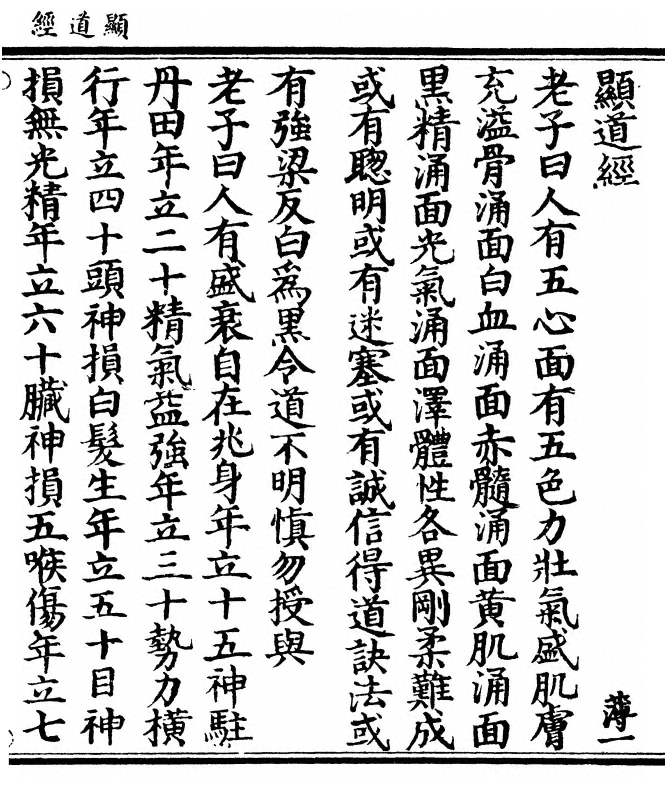 顯道經
顯道經 薄一
老子曰人有五心面有五色力壯氣盛肌膚
充溢骨涌面白血涌面赤髓涌面黃肌涌面
黑精涌面光氣涌面澤體性各異剛柔難成
或有聦明或有迷塞或有誠信得道訣法或
有強梁反白爲黑令道不明慎勿授與
老子曰人有盛衰自在兆身年立十五神駐
丹田年立二十精氣益強年立三十勢力橫
行年立四十頭神損白髮生年立五十目神
損無光精年立六十臟神損五喉傷年立七